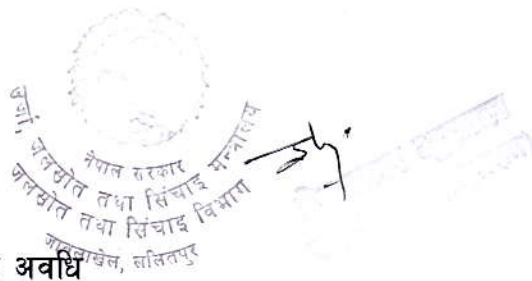 नेपाल सरकार
ऊर्जा, जलस्रोत तथा सिंचाइ मन्त्रालय
जलस्रोत तथा सिंचाइ विभाग
जावलाखेल, ललितपुर
अवधि